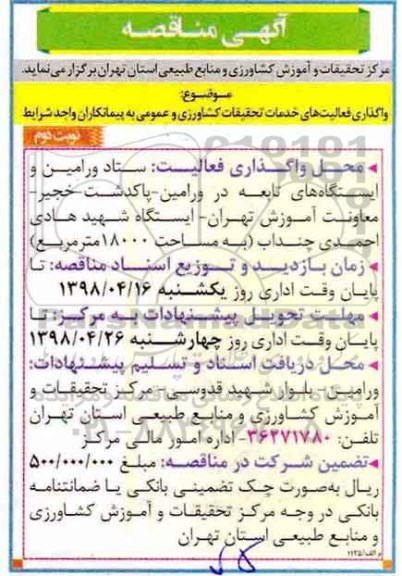 آگهی مناقصه
مرکز تحقیقات و آموزش کشاورزی و منابع طبیعی استان تهران برگزار می نماید.
موضوع:
واگذاری فعالیت‌های خدمات تحقیقات کشاورزی و عمومی به پیمانکاران واجد شرایط
نوبت دوم
◄محل واگذاری فعالیت: ستاد ورامین و
ایستگاه‌های تابعه در ورامین-پاکدشت-خجیر-
معاونت آموزش تهران- ایستگاه شهید هادی
احمدی چنداب (به مساحت ۱۸۰۰۰مترمربع)
◄زمان بازدید و توزیع اسناد مناقصه: تا
پایان وقت اداری روز یکشنبه ۱۳۹۸/۰۴/۱۶
◄مهلت تحویل پیشنهادات به مرکز: تا
پایان وقت اداری روز چهارشنبه ۱۳۹۸/۰۴/۲۶
◄محل دریافت اسناد و تسلیم پیشنهادات:
ورامین- بلوار شهید قدوسی- مرکز تحقیقات و
آموزش کشاورزی و منابع طبیعی استان تهران
تلفن: ۳۶۲۷۱۷۸۰- اداره امور مالی مرکز
◄تضمین شرکت در مناقصه: مبلغ ۵۰۰/۰۰۰/۰۰۰
ریال به‌صورت چک تضمینی بانکی یا ضمانتنامه
بانکی در وجه مرکز تحقیقات و آموزش کشاورزی
و منابع طبیعی استان تهران